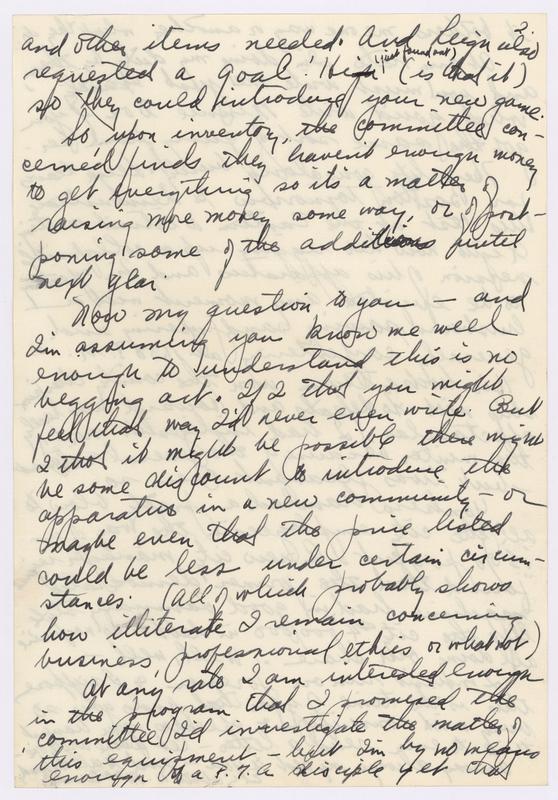 2
and other items needed. And Leigh also
requested a Goal! High (just found out) (is that it)
so they could introduce your new game.
So upon inventory, the committee con-
cerned finds they haven't enough money
to get everything so it's a matter of
raising more money some way, or of post-
poning some of the additions until
next year.
Now my question to you — and
I'm assuming you know me well
enough to understand this is no
begging act. If I thot you might
feel that way I'd never even write. But
I thot it might be possible there might
be some discount to introduce the
apparatus in a new community — or
maybe even that the price listed
could be less under certain circum-
stances. (All of which probably shows
how illiterate I remain concerning
business, professional ethics or what not)
At any rate I am interested enough
in the program that I promised the
committee I'd investigate the matter of
this equipment — but I'm by no means
enough of a P.T.A. disciple yet that